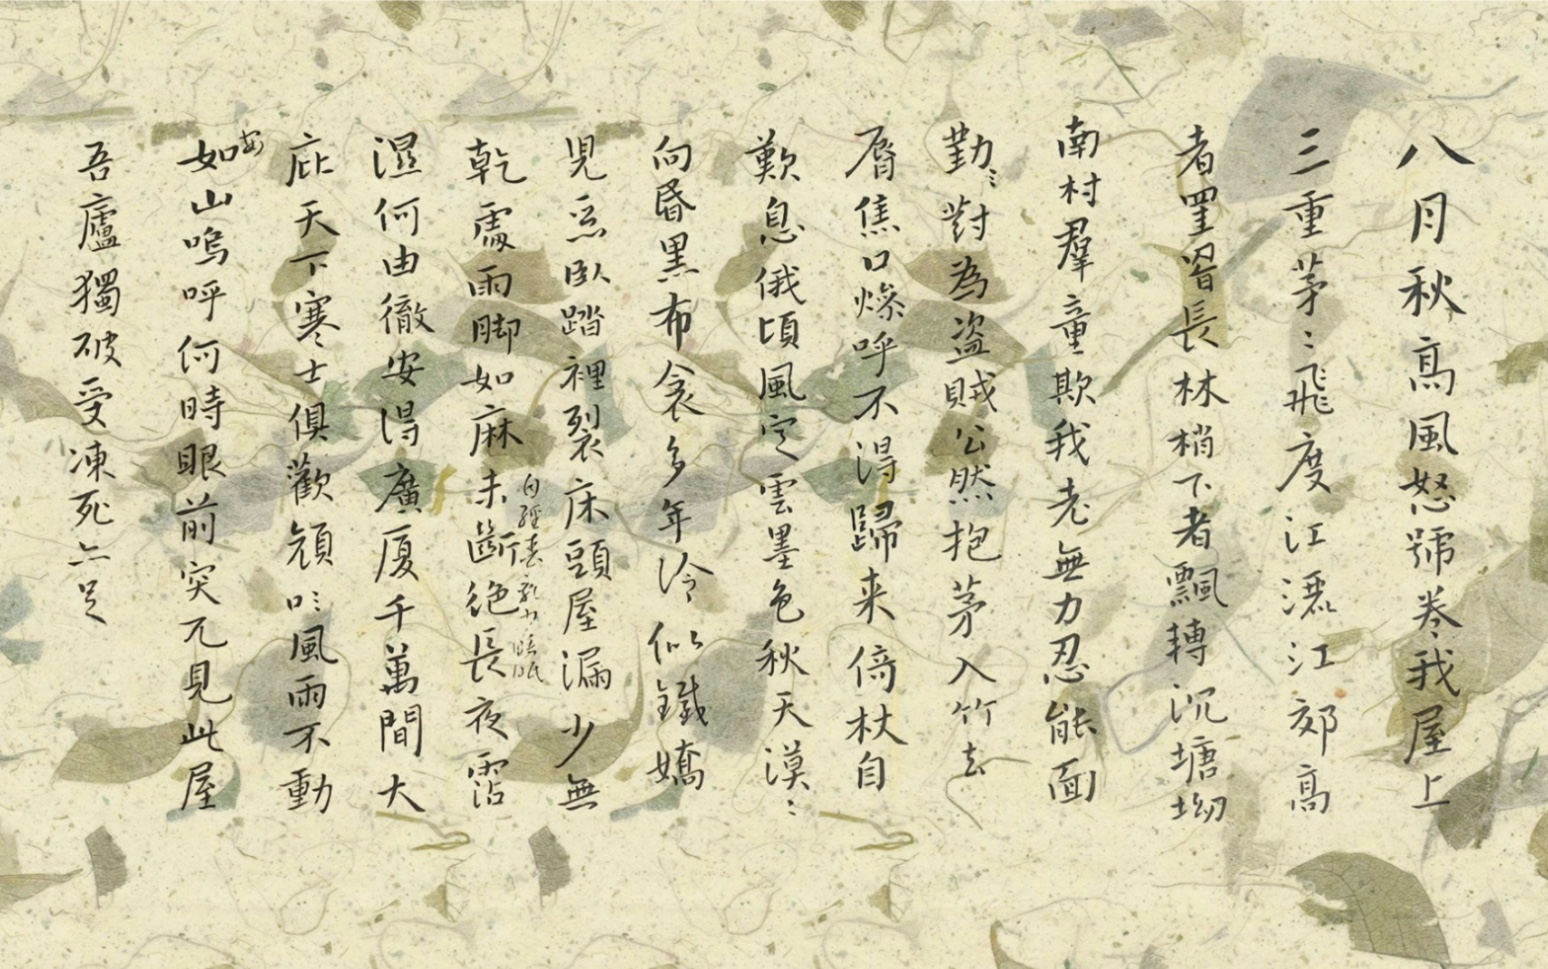 八月秋高風怒號卷我屋上
三重茅〻飛度江灑江郊高
者罣罥長林梢下者飄轉沉塘坳
南村羣童欺我老無力忍能面
勤〻對為盜賊公然抱茅入竹去
脣焦口燥呼不得歸来倚杖自
歎息俄頃風定雲墨色秋天漠〻
向昏黑布衾多年冷似鐵嬌
兒惡臥踏裡裂床頭屋漏少無
自經喪亂少睡眠
乾處雨脚如麻未斷絕長夜霑
濕何由徹安得廣厦千萬間大
庇天下寒士俱歡顏風雨不動
安
如山嗚呼何時眼前突兀見此屋
吾廬獨破受凍死亦足